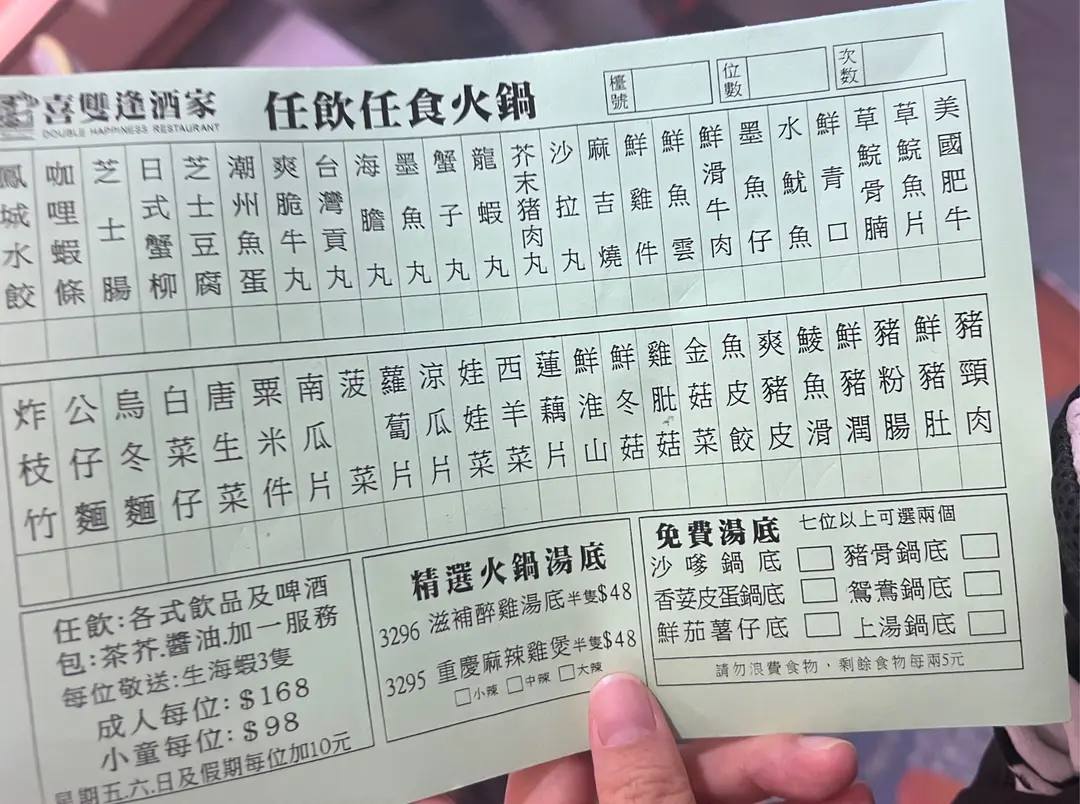 喜雙逢酒家
DOUBLE HAPPINESS RESTAURANT
任飲任食火鍋
檯號
位數
次數
美國肥牛
草鯇魚片
草鯇骨腩
鮮青口
水魷魚
墨魚仔
鮮滑牛肉
鮮魚雲
鮮雞件
麻吉燒
沙拉丸
芥末猪肉丸
龍蝦丸
蟹子丸
墨魚丸
海膽丸
台灣貢丸
爽脆牛丸
潮州魚蛋
芝士豆腐
日式蟹柳
芝士腸
咖哩蝦條
鳳城水餃
豬頸肉
鮮豬肚
豬粉腸
鮮豬潤
鯪魚滑
爽豬皮
魚皮餃
金菇菜
雞肶菇
鮮冬菇
鮮淮山
蓮藕片
西羊菜
娃娃菜
涼瓜片
蘿蔔片
菠菜
南瓜片
粟米件
唐生菜
白菜仔
烏冬麵
公仔麵
炸枝竹
任飲:各式飲品及啤酒
包:茶芥.醬油.加一服務
每位敬送:生海蝦3隻
成人每位:$168
小童每位:$98
星期五.六.日及假期每位加10元
精選火鍋湯底
3296 滋補醉雞湯底半隻$48
3295 重慶麻辣雞煲半隻$48
小辣 中辣 大辣
免費湯底 七位以上可選兩個
沙嗲鍋底 豬骨鍋底
香荽皮蛋鍋底 鴛鴦鍋底
鮮茄薯仔底 上湯鍋底
請勿浪費食物，剩餘食物每兩5元